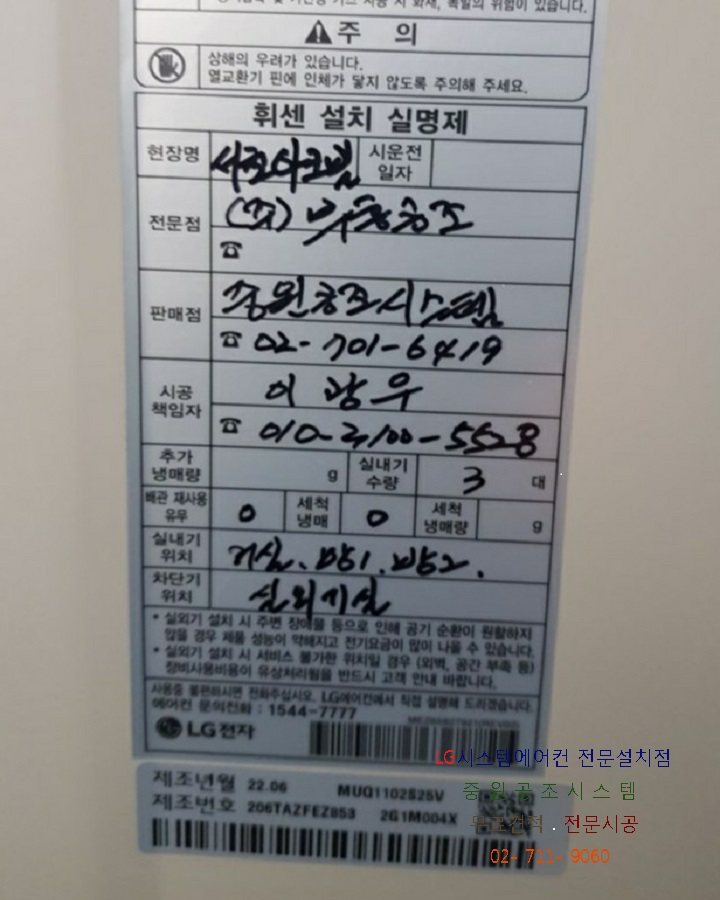 주 의
상해의 우려가 있습니다.
열교환기 핀에 인체가 닿지 않도록 주의해 주세요.
휘센 설치 실명제
현장명 서초아크빌 시운전 일자
전문점 (주)
☎
판매점 중원공조시스템
☎ 02-701-6419
시공 책임자 이광우
☎ 010-2100-5528
추가 냉매량 g 실내기 수량 3 대
배관 재사용 유무 0 세척 냉매 0 세척 냉매량 g
실내기 위치 거실.
차단기 위치 실외기실
* 실외기 설치 시 주변 장애물 등으로 인해 공기 순환이 원활하지
않을 경우 제품 성능이 약해지고 전기요금이 많이 나올 수 있습니다.
* 실외기 설치 시 서비스 불가한 위치일 경우 (외벽, 공간 부족 등)
장비사용비용이 유상처리됨을 반드시 고객 안내 바랍니다.
사용중 불편하시면 전화주십시오. LG에어컨에서 직접 설명해 드리겠습니다.
에어컨 문의전화 : 1544-7777
LG전자
제조년월 22.06 MUQ1102S25V
제조번호 206TAZFEZ853 2G1M004X
LG시스템에어컨 전문설치점
중원공조시스템
무료견적 . 전문시공
02- 711- 9060